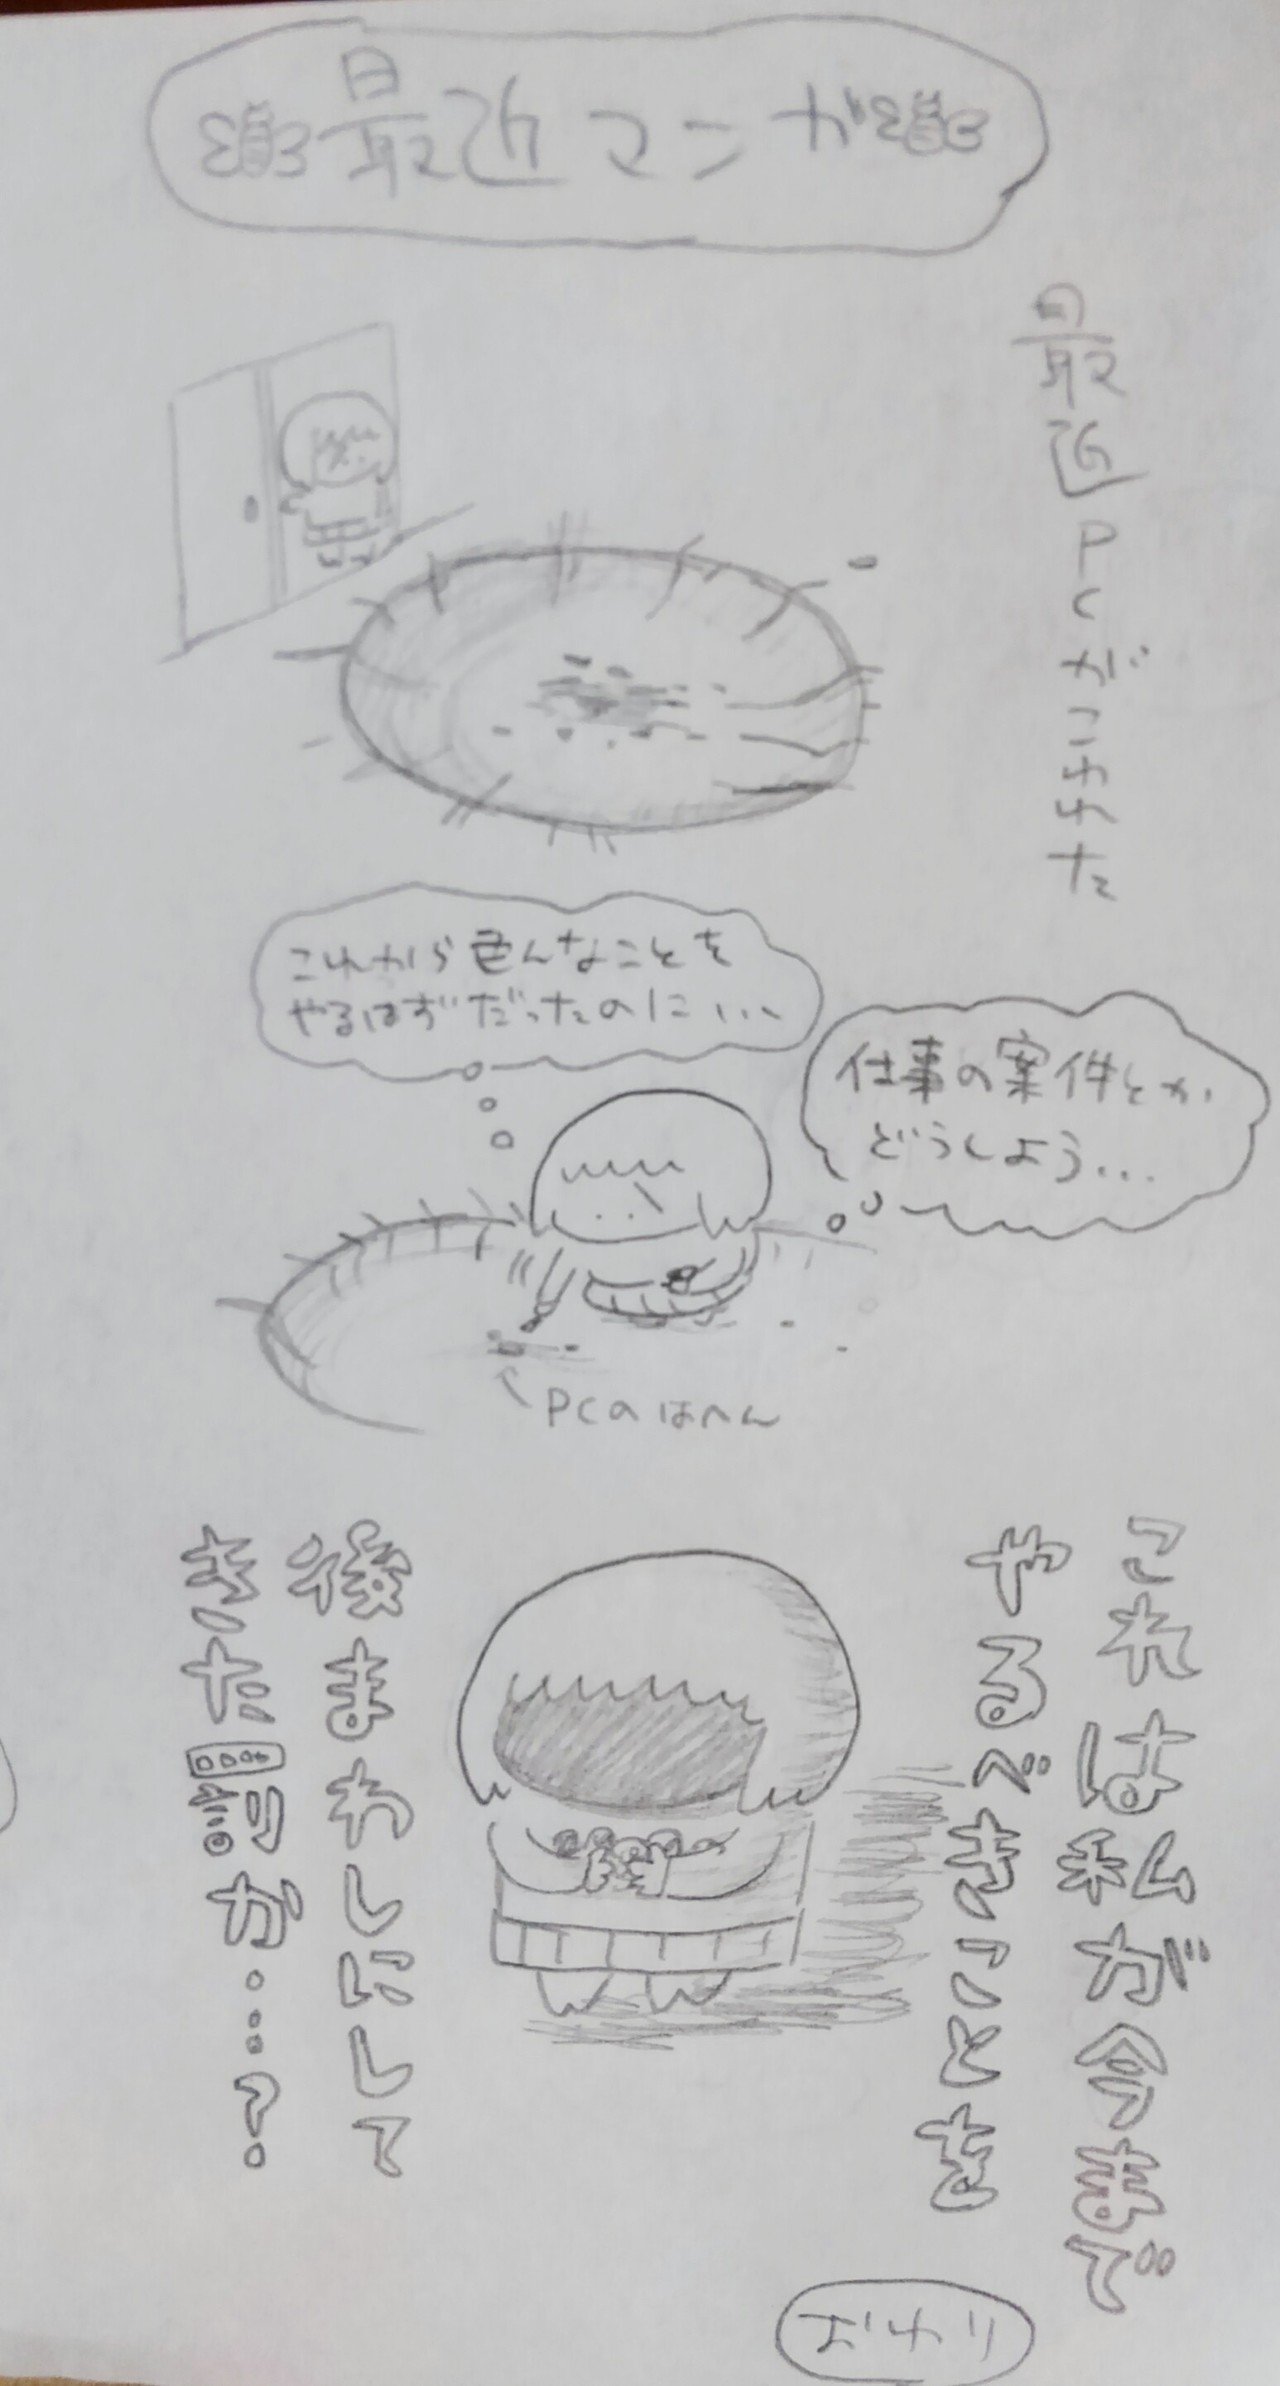 最近マンガ
最近PCがこわれた
これから色んなことを
やるはずだったのに...
仕事の案件とか、
どうしよう...
PCのはへん
これは私が今まで
やるべきことを
後まわしにして
きた罰か…?
おわり